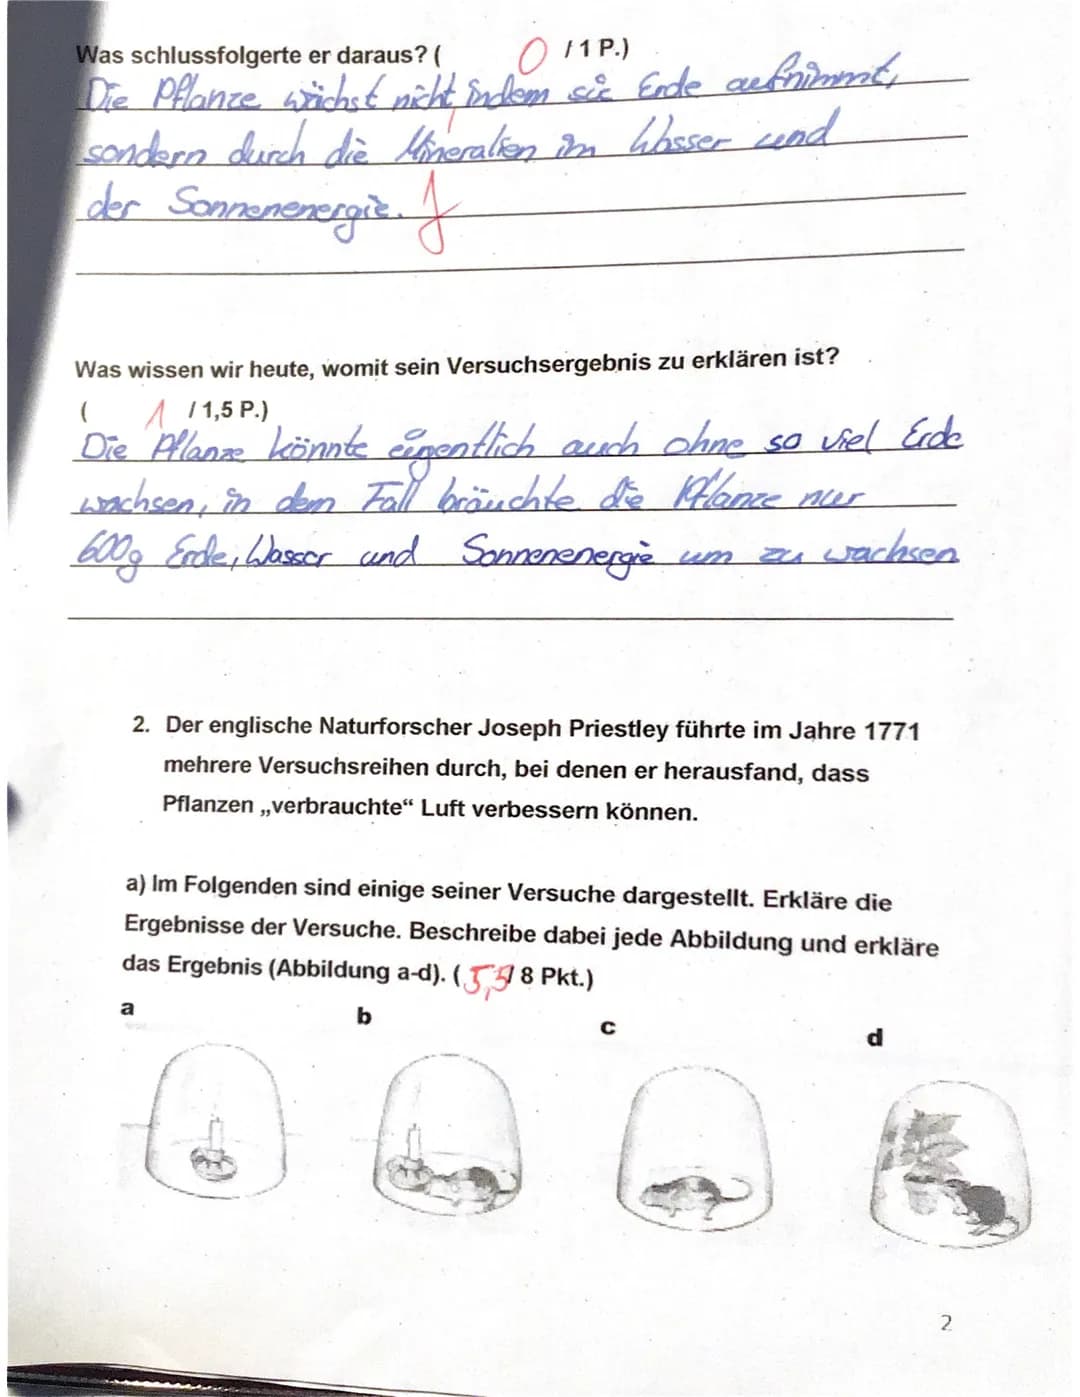 Was schlussfolgerte er daraus? ( 0 / 1 P.)
Die Pflanze wächst nicht, indem sie Erde aufnimmt,
sondern durch die Mineralien im Wasser und
der Sonnenenergie. f
Was wissen wir heute, womit sein Versuchsergebnis zu erklären ist?
( 1 / 1,5 P.)
Die Pflanze könnte eigentlich auch ohne so viel Erde
wachsen, in dem Fall bräuchte die Pflanze nur
600g Erde, Wasser und Sonnenenergie um zu wachsen
2. Der englische Naturforscher Joseph Priestley führte im Jahre 1771
mehrere Versuchsreihen durch, bei denen er herausfand, dass
Pflanzen „verbrauchte“ Luft verbessern können.
a) Im Folgenden sind einige seiner Versuche dargestellt. Erkläre die
Ergebnisse der Versuche. Beschreibe dabei jede Abbildung und erkläre
das Ergebnis (Abbildung a-d). ( 5,5 / 8 Pkt.)
a b c d
2